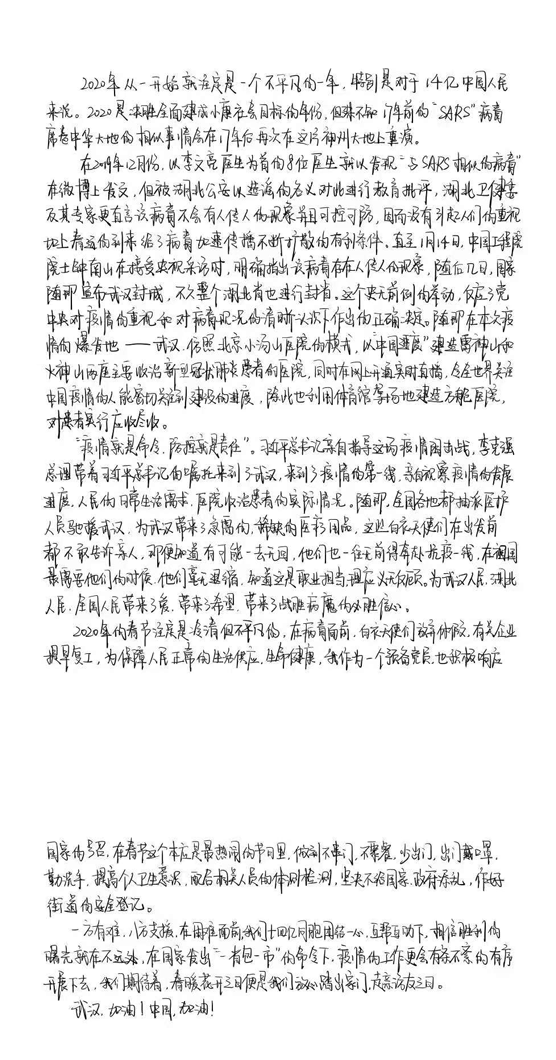 2020年从一开始就注定是一个不平凡的一年，特别是对于14亿中国人民
来说。2020是决胜全面建成小康社会目标的年份，但殊不知17年前的“SARS”病毒
席卷中华大地的相似事情会在17年后再次在这片神州大地上重演。
在2019年12月份，以李文亮医生为首的8位医生就以发现“与SARS相似的病毒”
在微博上发文，但被湖北公安以造谣的名义对此进行教育批评，湖北卫健委
及其专家更直言该病毒不会有人传人的现象并且可控可防，因而没有引起人们的重视
加上春运的到来给了病毒加速传播不断扩散的有利条件。直至1月14日，中国工程院
院士钟南山在接受央视采访时，明确指出该病毒存在人传人的现象，随后几日，国家
随即宣布武汉封城，不久整个湖北省也进行封省。这个史无前例的举动，反应了党
中央对疫情的重视和对病毒现况的清晰认识下作出的正确决定。随即在本次疫
情的爆发地——武汉，仿照北京小汤山医院的模式，以“中国速度”建造雷神山和
火神山两座主要收治新型冠状肺炎患者的医院，同时在网上开通实时直播，令全世界关注
中国疫情的人能密切关注到建设的进度，除此也利用体育馆等场地建造方舱医院，
对患者实行应收尽收。
“疫情就是命令，防控就是责任”。习近平总书记亲自指导这场疫情阻击战，李克强
总理带着习近平总书记的嘱托来到了武汉，来到了疫情的第一线，亲自视察疫情的发展
进度、人民的日常生活需求、医院收治患者的实际情况。随即，全国各地都抽派医护
人员驰援武汉，为武汉带来了急需的、稀缺的医疗用品，这些白衣天使们在出发前
都不敢告诉亲人，即便知道有可能一去无回，他们也一往无前得奔赴抗疫一线，在祖国
最需要他们的时候，他们毫无退缩，知道这是职业担当，理应义无反顾。为武汉人民、湖北
人民、全国人民带来了爱，带来了希望，带来了战胜病魔的必胜信心。
2020年的春节注定是冷清但不平凡的，在病毒面前，白衣天使们放弃休假，有关企业
提早复工，为保障人民正常的生活供应、生命健康，我作为一个预备党员，也积极响应
国家的号召，在春节这个本应是最热闹的节日里，做到不串门，不聚餐，少出门，出门戴口罩，
勤洗手，提高个人卫生意识，配合相关人员的体测检测，坚决不给国家、政府添乱，作好
街道的安全登记。
一方有难，八方支援，在困难面前，我们十四亿同胞团结一心，互帮互助下，相信胜利的
曙光就在不远处，在国家发出“一省包一市”的命令下，疫情的工作更会有条不紊的有序
开展下去，我们期待着，春暖花开之日便是我们放心踏出家门，走亲访友之日。
武汉，加油！中国，加油！